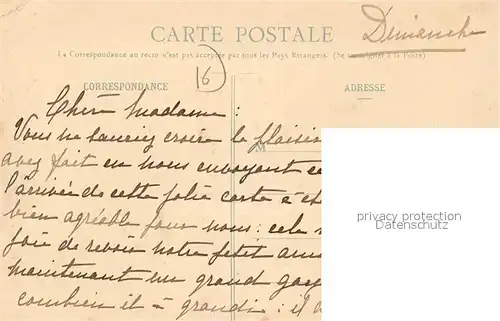 CARTE POSTALE
Dimanche
La Correspondance au recto n'est pas acceptée par tous les Pays Étrangers. (Se renseigner à la Poste)
16
CORRESPONDANCE
ADRESSE
Chère Madame :
Vous ne sauriez croire le plaisir
M
avez fait en nous envoyant
l'arrivée de cette jolie carte a
bien agréable pour nous : cela
joie de revoir notre petit
maintenant un grand
combien il a grandi : il
privacy protection
Datenschutz